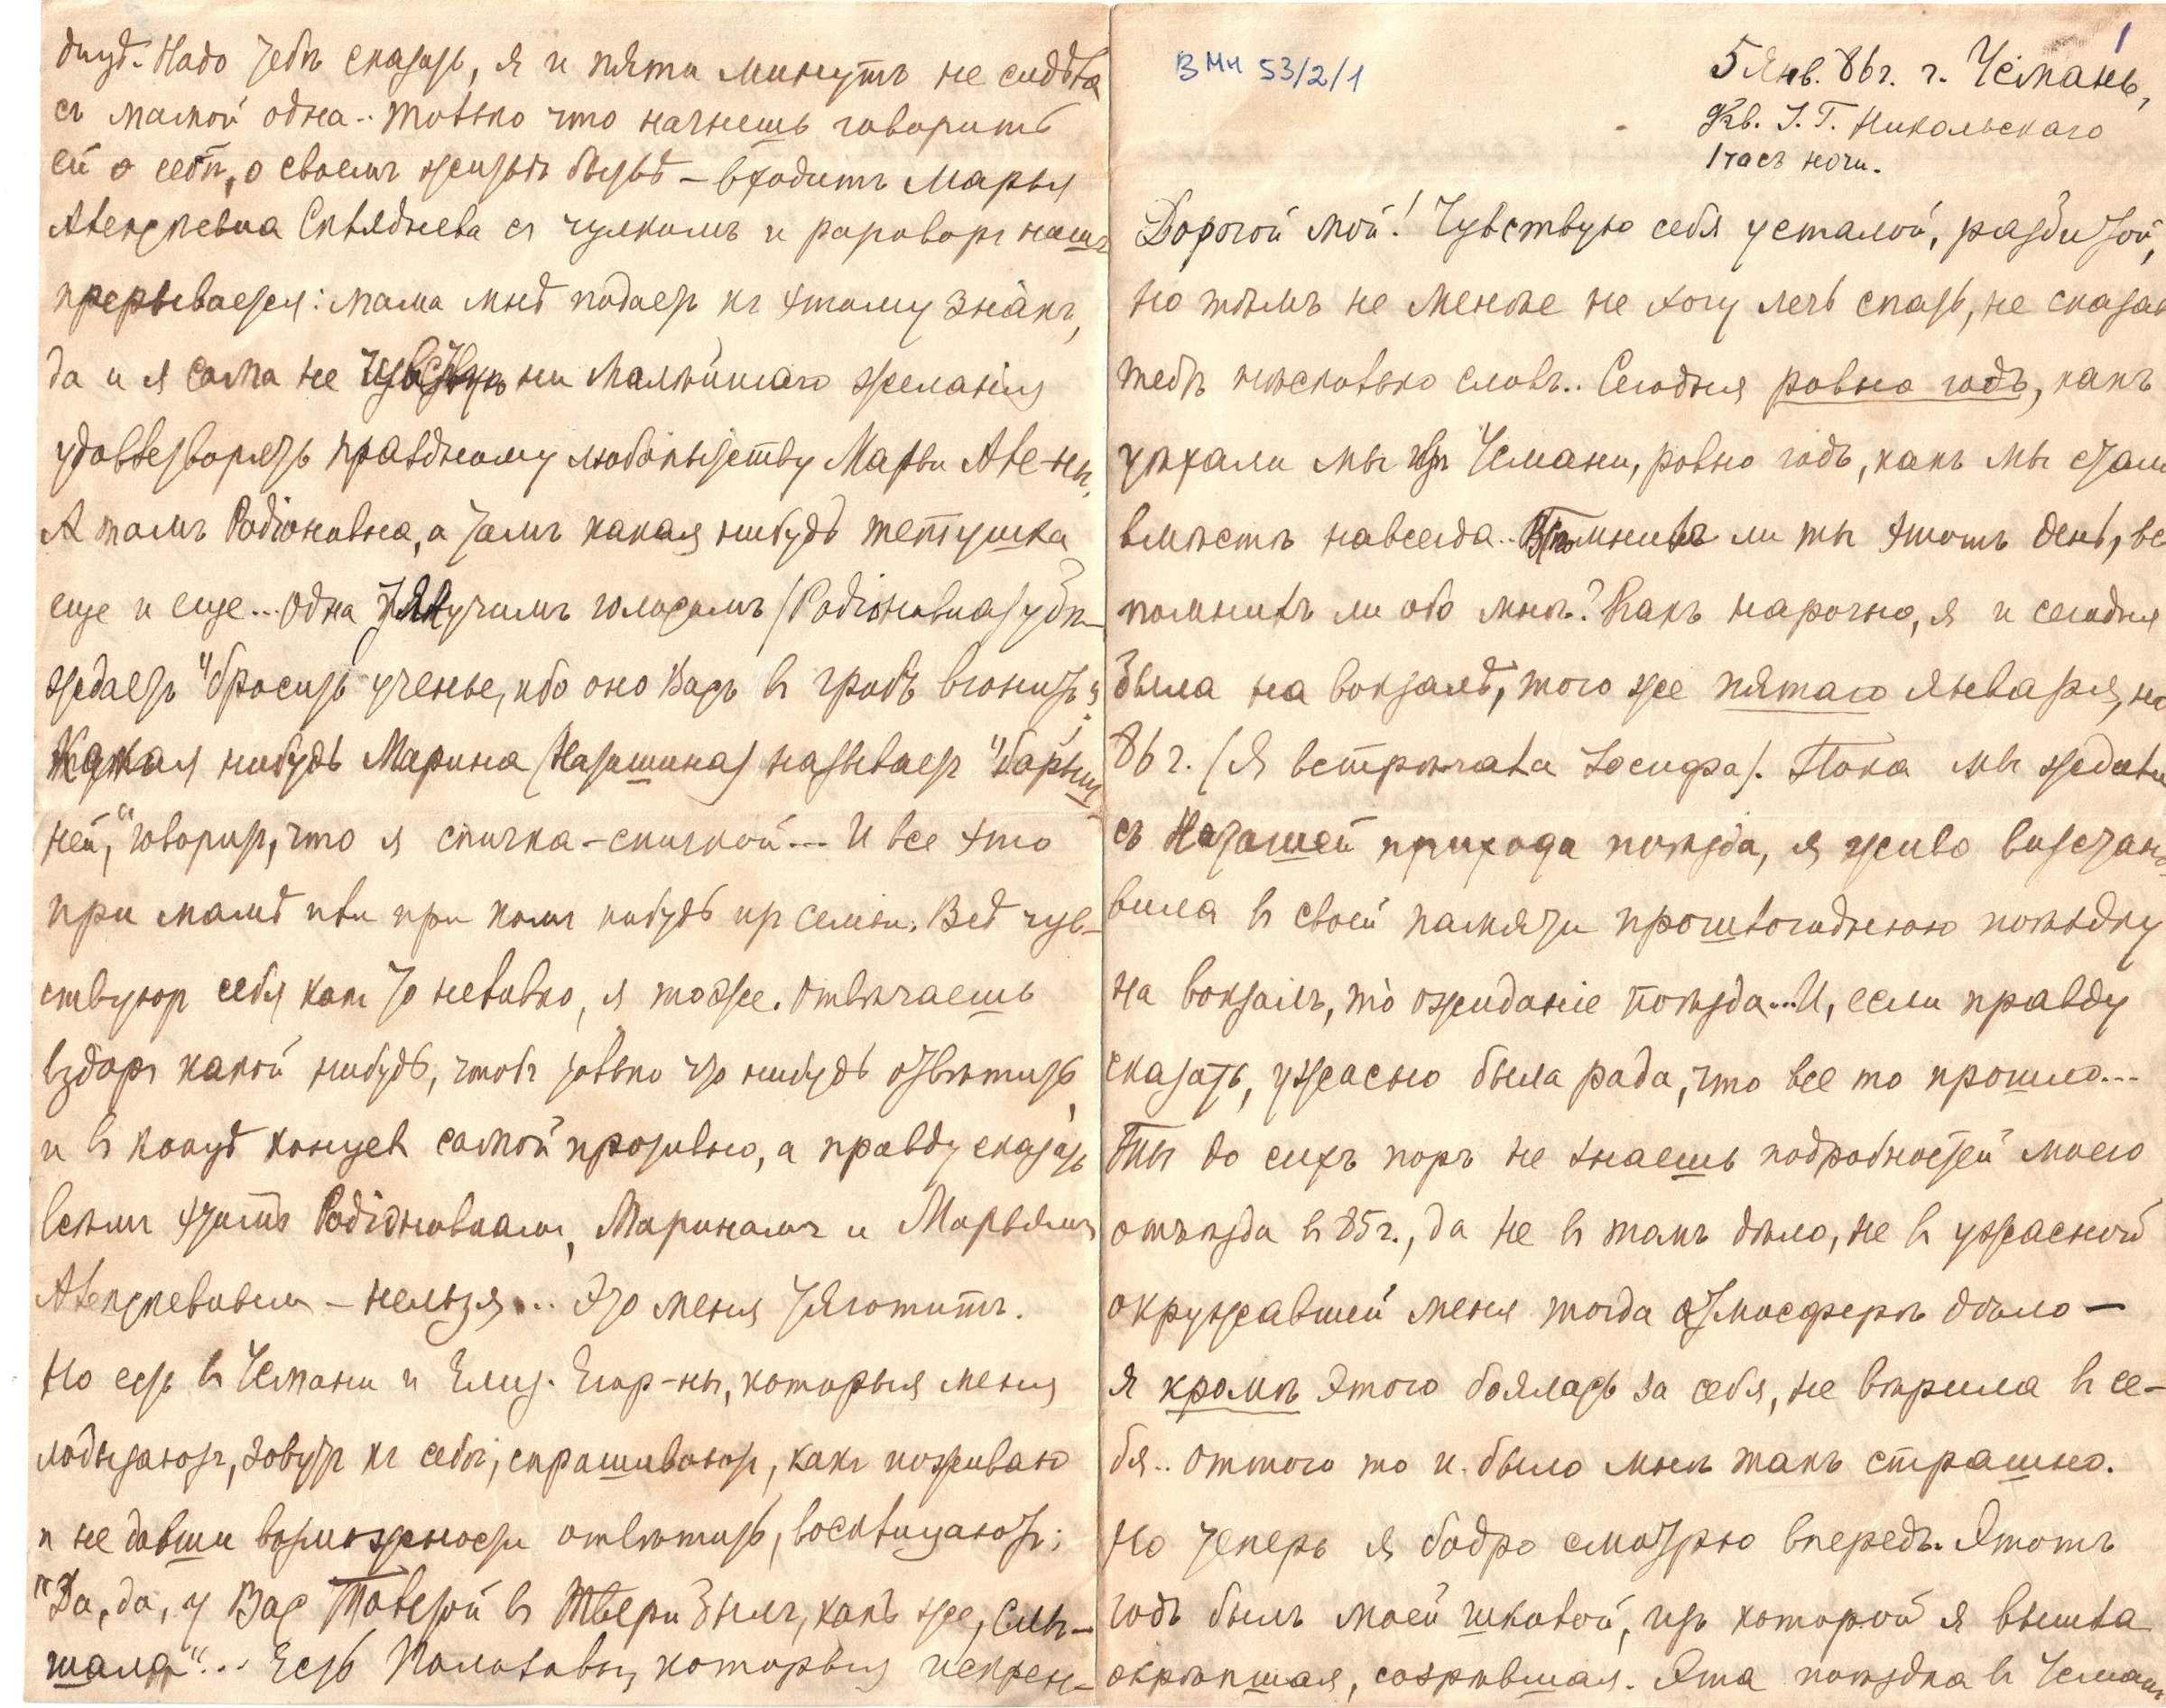 ВМЧ 53/2/1
1
5 Янв. 86 г. г. Усмань,
Кв. І. Г. Никольскаго
1 часъ ночи.
Дорогой мой! Чувствую себя усталой, разбитой,
но тѣмъ не менѣе не хочу лечь спать, не сказав
тебѣ нѣсколько словъ.. Сегодня ровно годъ, какъ
уѣхали мы изъ Усмани, ровно годъ, какъ мы стали
вмѣстѣ навсегда.. ли ты этотъ день, вс
помнилъ ли обо мнѣ? Какъ нарочно, я и сегодня
была на вокзалѣ, того же пятаго января, но
86 г. (Я встрѣчала Іосифа). Пока мы ждали
съ Наташей прихода поѣзда, я живо возстано-
вила въ своей памяти прошлогоднюю поѣздку
на вокзалъ, то ожиданіе поѣзда... И, если правду
сказать, ужасно была рада, что все то прошло...
Ты до сихъ поръ не знаешь подробностей моего
отъѣзда въ 85 г., да не въ томъ дѣло, не въ ужасной
окружавшей меня тогда атмосферѣ дѣло —
я кромѣ этого боялась за себя, не вѣрила въ се-
бя.. оттого то и было мнѣ такъ страшно.
Но теперь я бодро смотрю впередъ. Этотъ
годъ былъ моей школой, изъ которой я вышла
окрѣпшая, созрѣвшая. Эта поѣздка въ Усмань
Надо тебѣ сказать, я и пяти минутъ не сидѣла
съ мамой одна.. только что начнешь говорить
ей о себѣ, о своемъ житьѣ бытьѣ – входитъ Марья
Алексѣевна Склядн̃ева съ чулкомъ и разговоръ нашъ
прерывается: мама мнѣ подаетъ къ этому знакъ,
да и я сама не чувствую ни малѣйшаго желанія
удовлетворять праздному любопытству Марьи Але-ны.
А тамъ Родіоновна, а тамъ какая нибудь тетушка
еще и еще... одна тягучимъ голосомъ (Родіоновна) убѣ-
ждаетъ "бросить ученье, ибо оно Васъ въ гробъ вгонитъ",
какая нибудь Марина (Наташина) называетъ "барыш-
ней," говоритъ, что я спичка-спичкой... И все это
при мамѣ или при комъ нибудь изъ семьи. Всѣ чув-
ствуютъ себя какъ то неловко, я тоже. Отвѣчаешь
вздоръ какой нибудь, чтобъ только что нибудь отвѣтить,
и въ концѣ концевъ самой противно, а правду сказать
всѣмъ этимъ Родіоновнамъ, Маринамъ и Марьямъ
Алексѣевнамъ – нельзя... Это меня тяготитъ.
Но есть въ Усмани и Елиз. Егор-ны, которыя меня
лобызаютъ, зовутъ къ себѣ, спрашиваютъ, какъ поживаю
и не давши возможности отвѣтить, восклицаютъ:
"Да, да, у Васъ Толстой въ Твери былъ, какъ же, слы-
шала"... Есть которыя искрен-